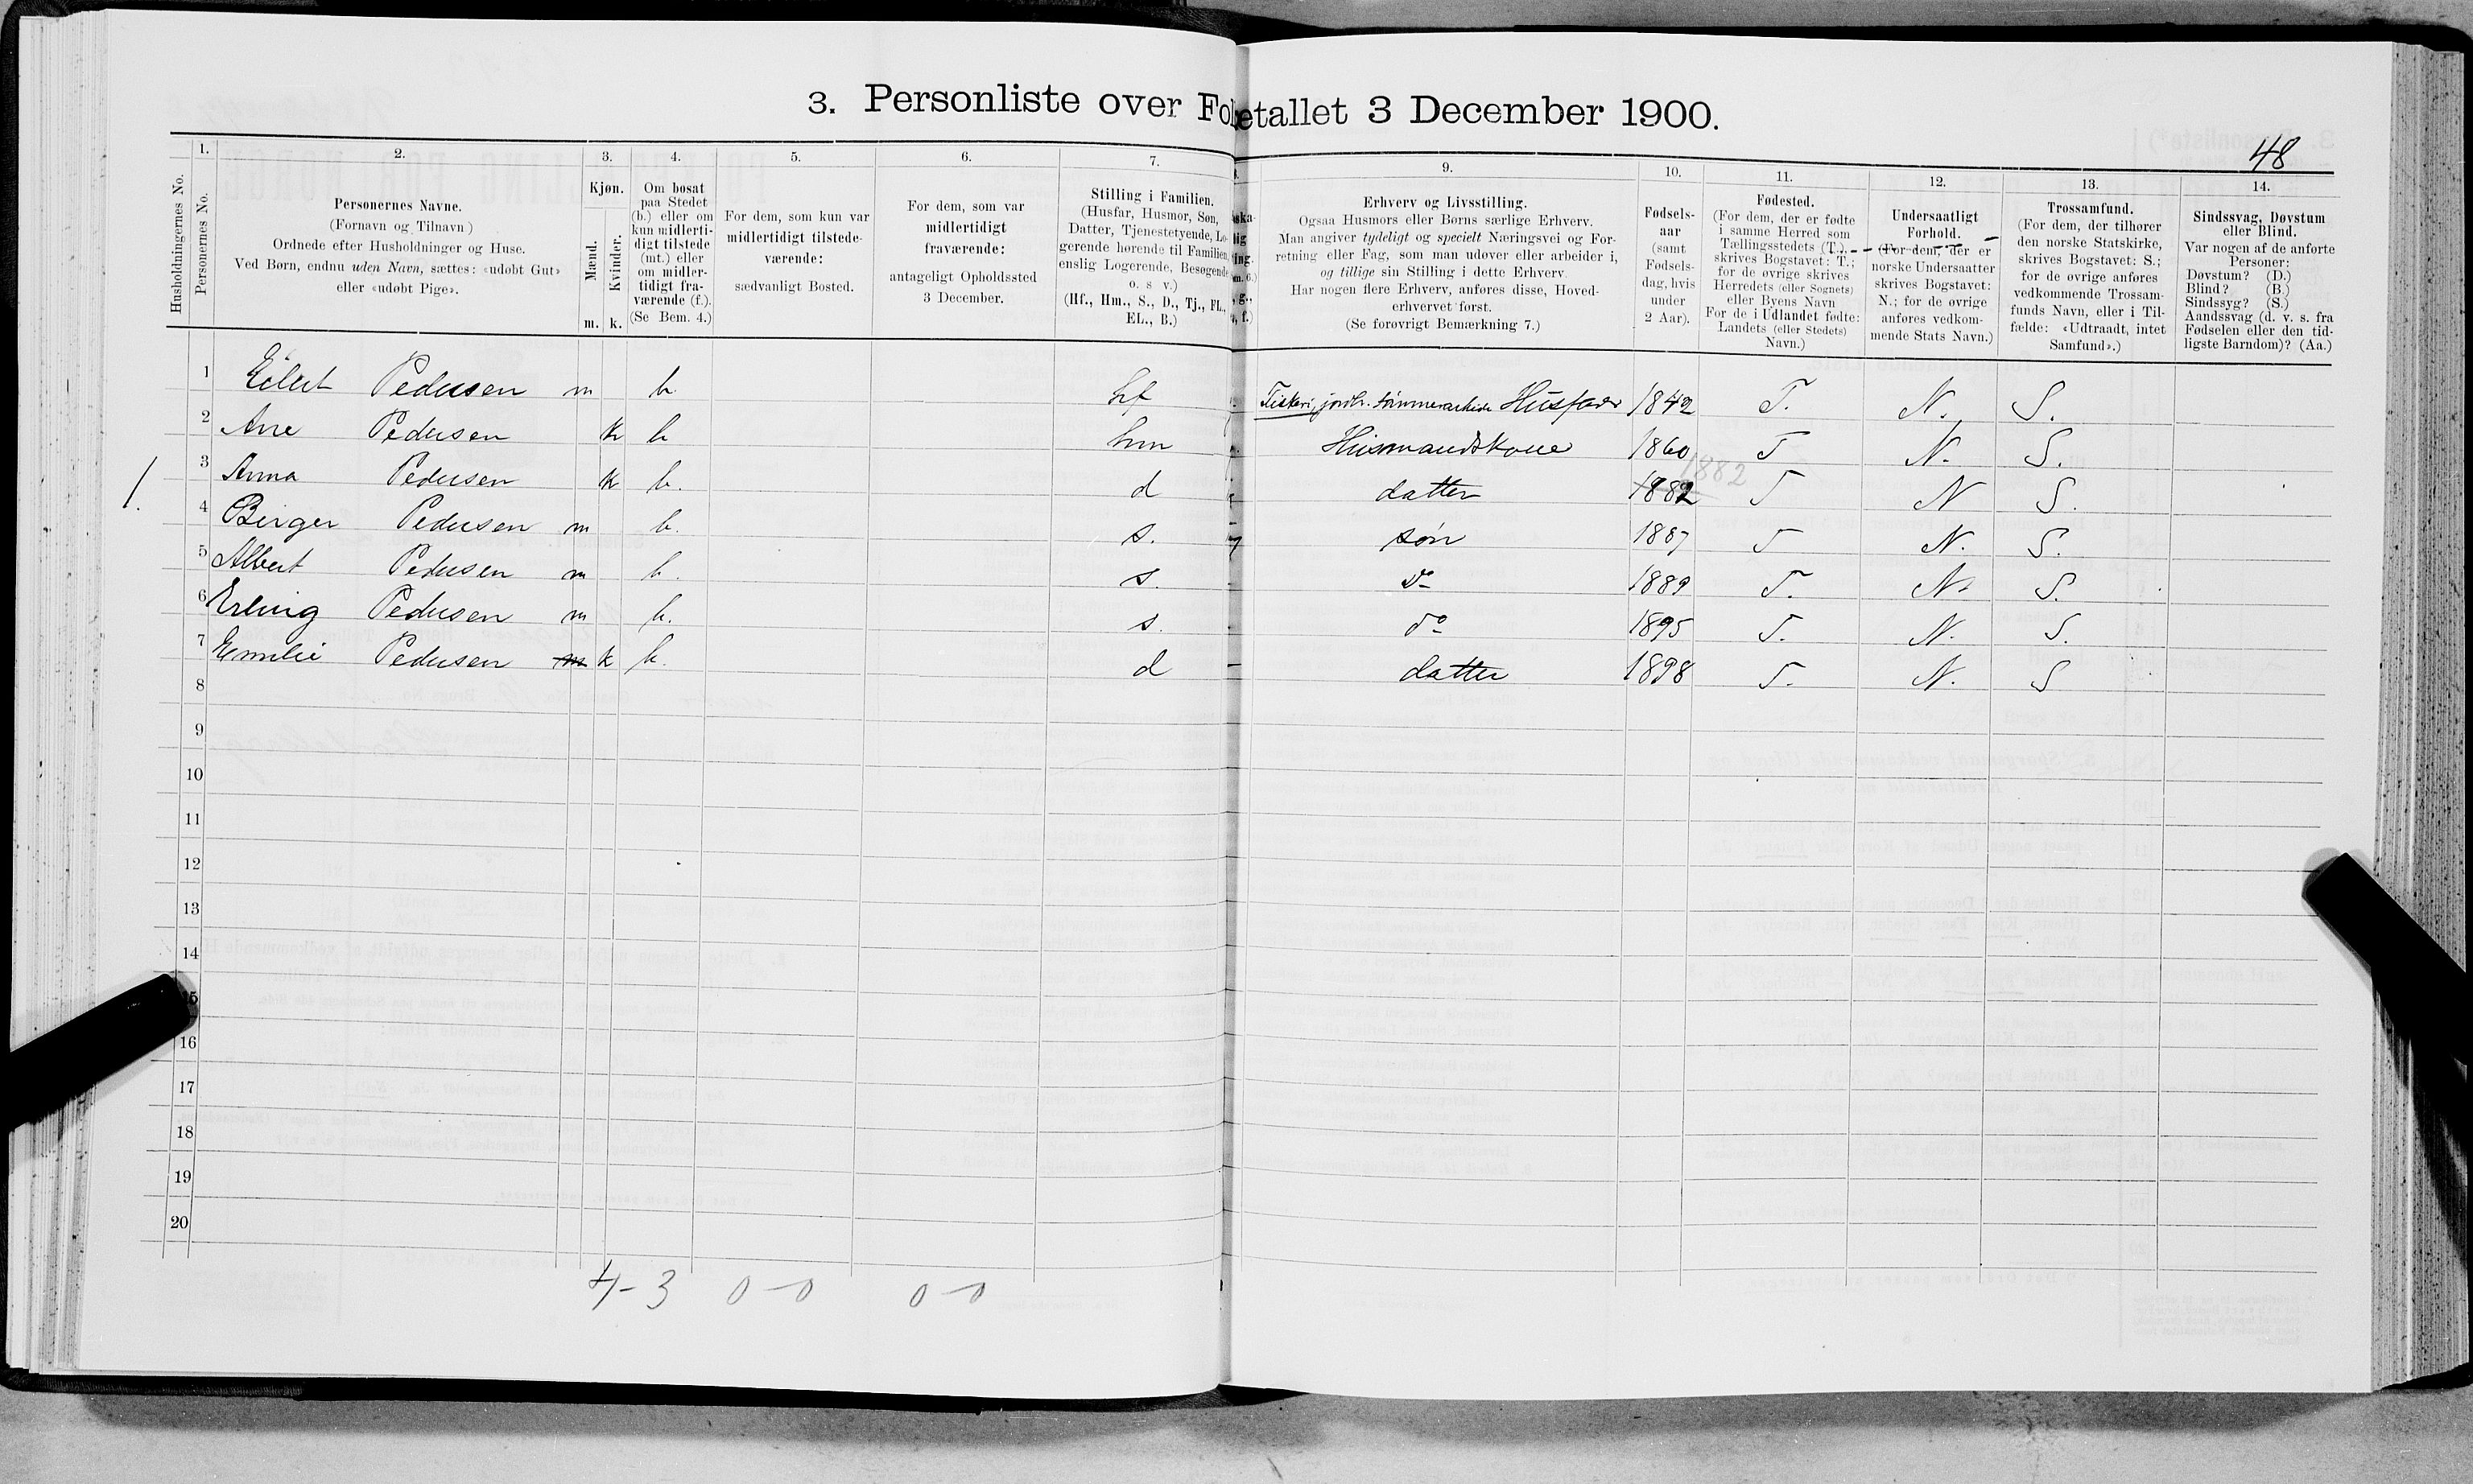 3. Personliste over Folketallet 3 December 1900.
48
Husholdningernes No.
1.
Personernes No.
2.
Personernes Navne.
(Fornavn og Tilnavn)
Ordnede efter Husholdninger og Huse.
Ved Børn, endnu uden Navn, sættes: «udøbt Gut»
eller «udøbt Pige».
3.
Kjøn.
Mænd.
Kvinder.
m. k.
4.
Om bosat
paa Stedet
(b.) eller om
kun midlerti-
digt tilstede
(mt.) eller
om midler-
tidigt fra-
værende (f.).
(Se Bem. 4.)
5.
For dem, som kun var
midlertidigt tilstede-
værende:
sædvanligt Bosted.
6.
For dem, som var
midlertidigt
fraværende:
antageligt Opholdssted
3 December.
7.
Stilling i Familien.
(Husfar, Husmor, Søn,
Datter, Tjenestetyende, Lo-
gerende hørende til Familien,
enslig Logerende, Besøgende
o. s v.)
(Hf., Hm., S., D., Tj., FL.,
EL., B.)
9.
Erhverv og Livsstilling.
Ogsaa Husmors eller Børns særlige Erhverv.
Man angiver tydeligt og specielt Næringsvei og For-
retning eller Fag, som man udøver eller arbeider i,
og tillige sin Stilling i dette Erhverv.
Har nogen flere Erhverv, anføres disse, Hoved-
erhvervet først.
(Se forøvrigt Bemærkning 7.)
10.
Fødsels-
aar
(samt
Fødsels-
dag, hvis
under
2 Aar).
11.
Fødested.
(For dem, der er fødte
i samme Herred som
Tællingsstedets (T.),
skrives Bogstavet: T.;
for de øvrige skrives
Herredets (eller Sognets)
eller Byens Navn
For de i Udlandet fødte:
Landets (eller Stedets)
Navn.)
12.
Undersaatligt
Forhold.
(For dem, der er
norske Undersaatter
skrives Bogstavet:
N.; for de øvrige
anføres vedkom-
mende Stats Navn.)
13.
Trossamfund.
(For dem, der tilhører
den norske Statskirke,
skrives Bogstavet: S.;
for de øvrige anføres
vedkommende Trossam-
funds Navn, eller i Til-
fælde: «Udtraadt, intet
Samfund».)
14.
Sindssvag, Døvstum
eller Blind.
Var nogen af de anførte
Personer:
Døvstum? (D.)
Blind? (B.)
Sindssyg? (S.)
Aandssvag (d. v. s. fra
Fødselen eller den tid-
ligste Barndom)? (Aa.)
1 Eilert Pedersen m b hf Fiskeri, jordb. tømmerarbeide Husfader 1842 T. N. S.
2 Ane Pedersen k b hm Husmandskone 1860 T N. S.
1882
3 Anna Pedersen k b. d datter 1882 T N S.
1.
4 Birger Pedersen m b. s. søn 1887 T N. S.
5 Albert Pedersen m b. s. do 1889 T. N. S.
6 Erling Pedersen m b. s. do 1895 T. N. S.
7 Emilie Pedersen m k b. d datter 1898 T. N. S
8
9
10
11
12
13
14
15
16
17
18
19
20
4-3 0-0 0-0